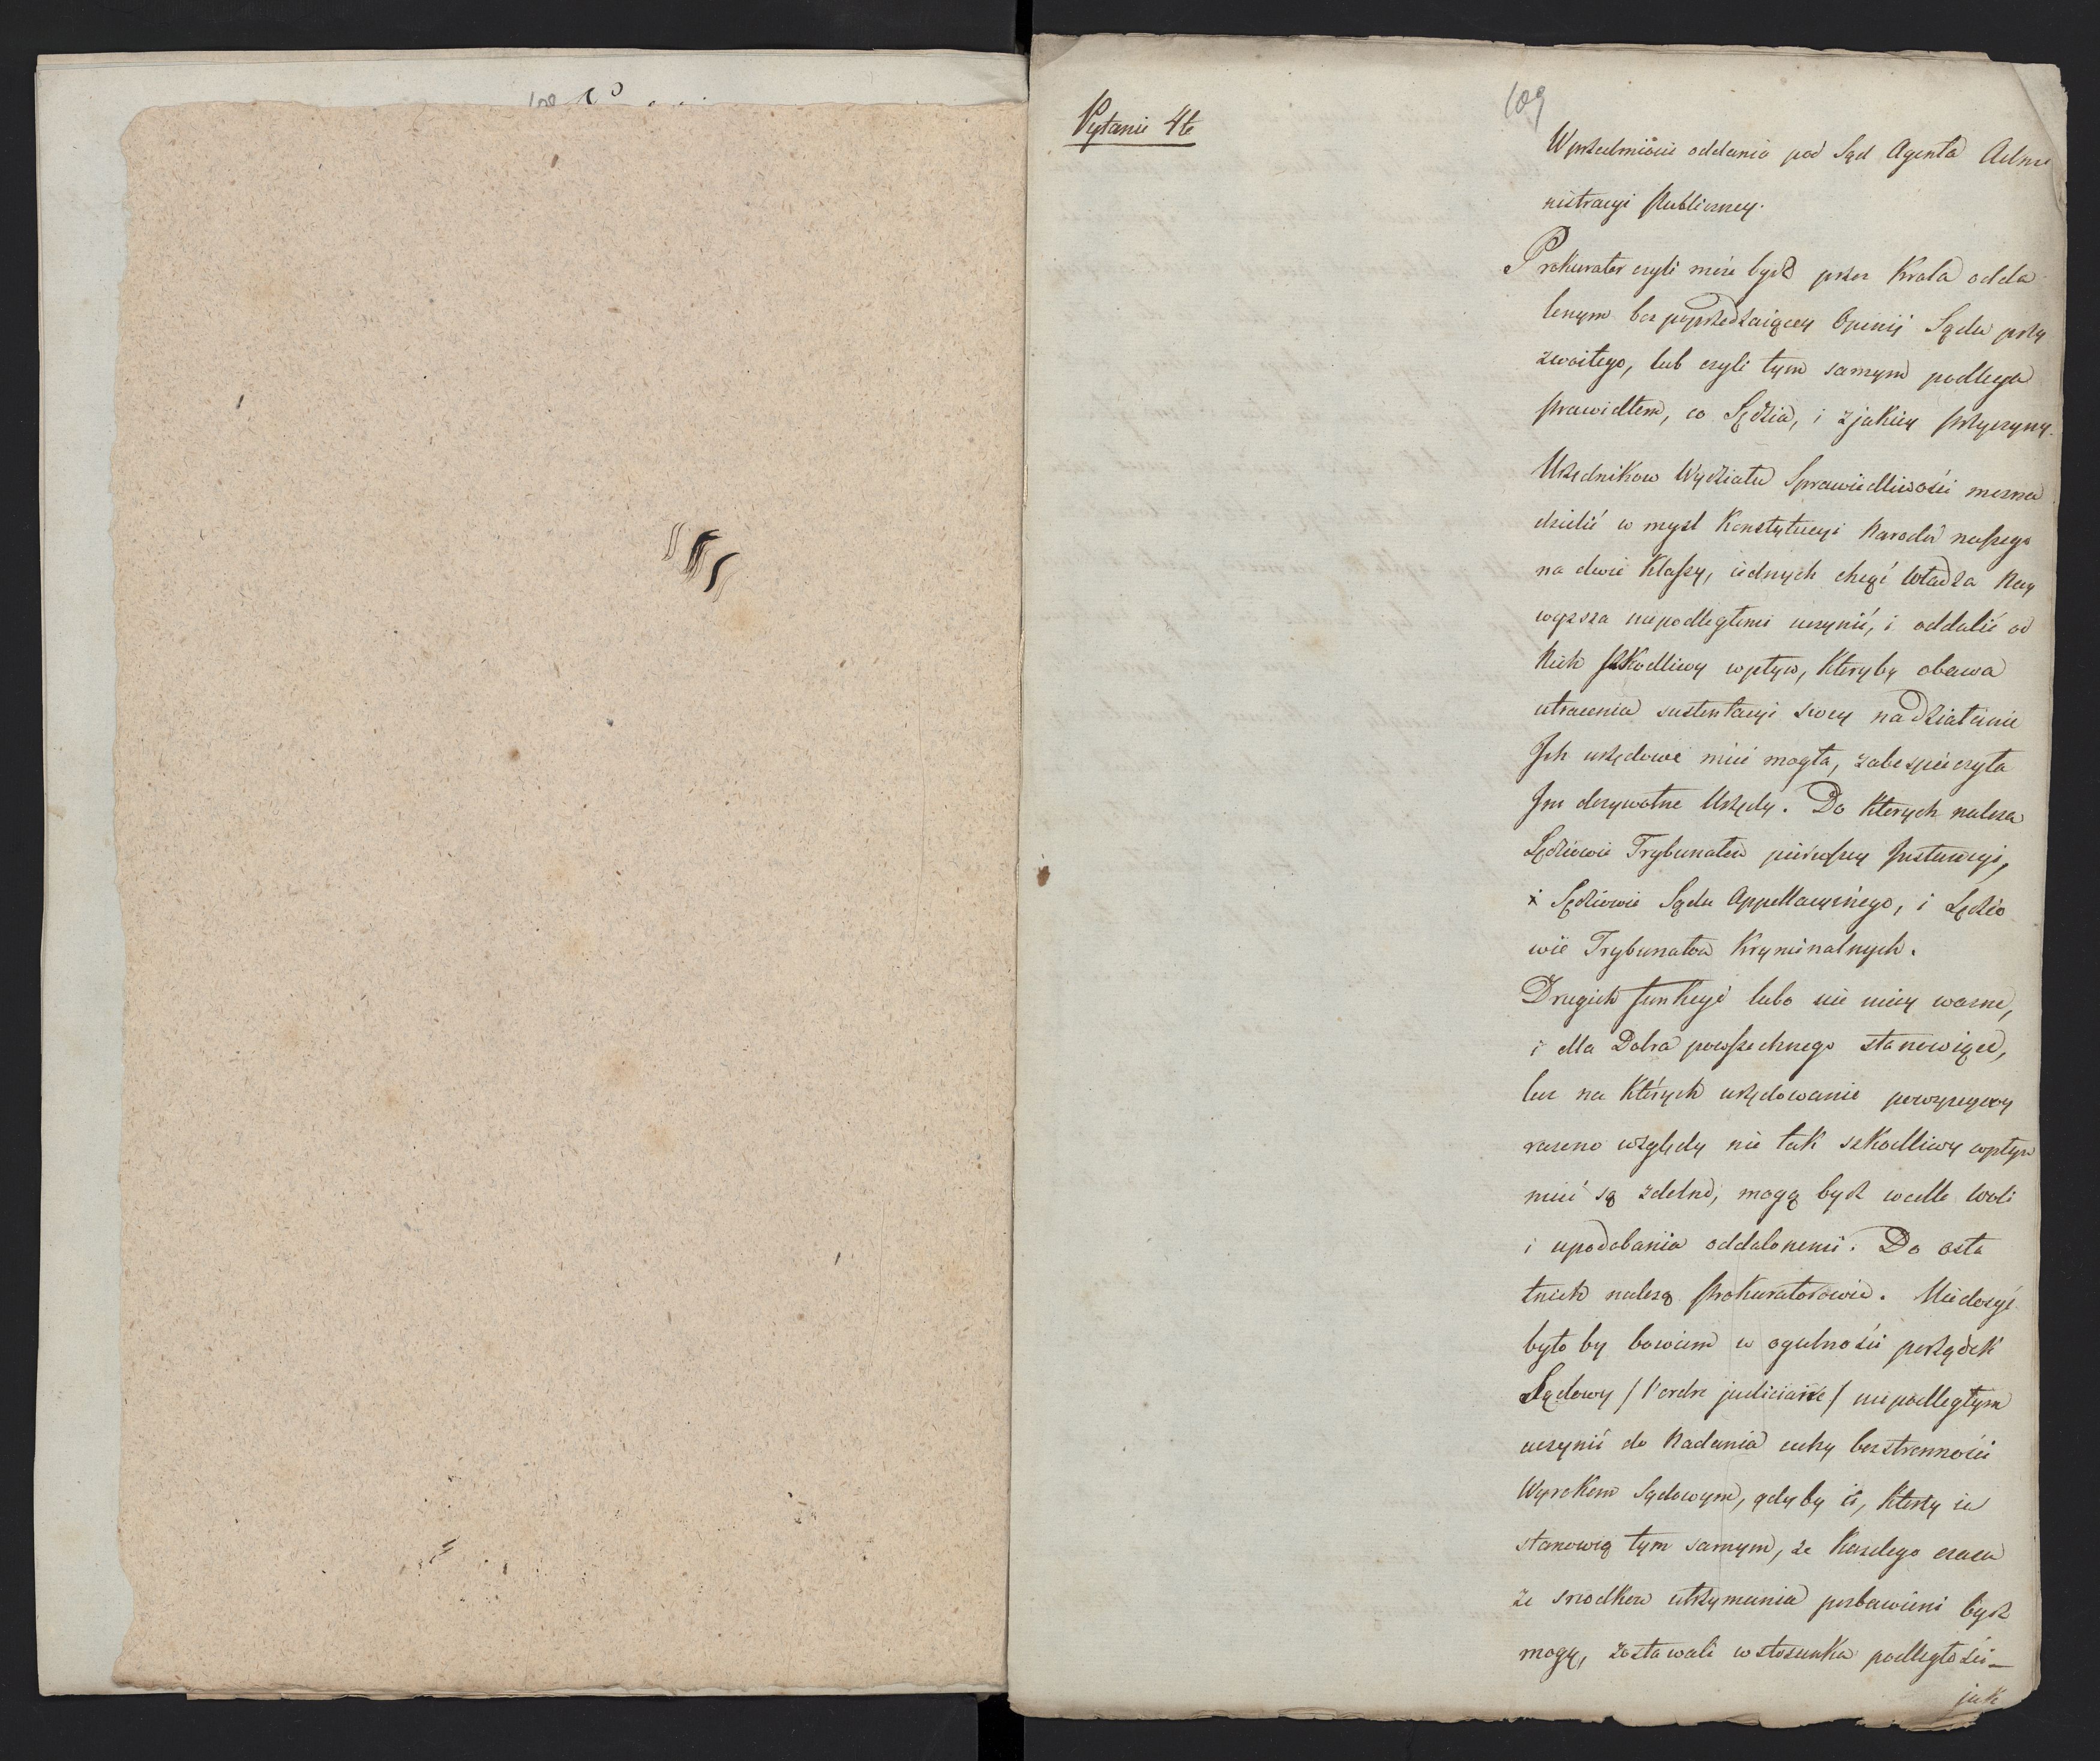 109
Pytanie 4te
W przedmiocie oddania pod Sąd Agenta Admi
nistracyi Publiczney.
Prokurator czyli może bydź przez Krola odda
lonym bez poprzedzaiącey Opinij Sądu przy
zwoitego, lub czyli tym samym podlega
prawidłom, co Sędzia, i z jakiey przyczyny.
Urzędnikow Wydziału Sprawiedliwości mozna
dzielić w mysl Konstytucyi Narodu naszego
na dwie Klassy, iednych chcąc Władza Nay
wyzsza niepodległemi uczynić, i oddalić od
Nich szkodliwy wpływ, ktoryby obawa
utracenia sustentacyi swey na działanie
Ich urzędowe mieć mogła, zabespieczyła
Im dozywotne Urzędy. Do ktorych naleza
Sędziowie Trybunałow pierwszey Instancyi,
i Sędziowie Sądu Appellacyinego, i Sędzio
wie Trybunałow Kryminalnych.
Drugich funkcye lubo nie mniey wazne,
i dla Dobra powszechnego stanowiące,
lecz na których urzędowanie
względy nie tak szkodliwy wpływ
mieć są zdolne, mogą bydź wedle woli
i upodobania oddalonemi. Do osta
tnich nalezą Prokuratorowie. Niedosyć
było by bowiem w ogulności porządek
Sądowy / l'ordre judiciaire / niepodległym
uczynić do Nadania cechy bezstronności
Wyrokom Sądowym, gdyby ci, ktorzy ie
stanowią tym samym, ze kazdego czasu
ze srodkow utrzymania pozbawieni bydź
mogą, zostawali w stosunku podległości –
jak